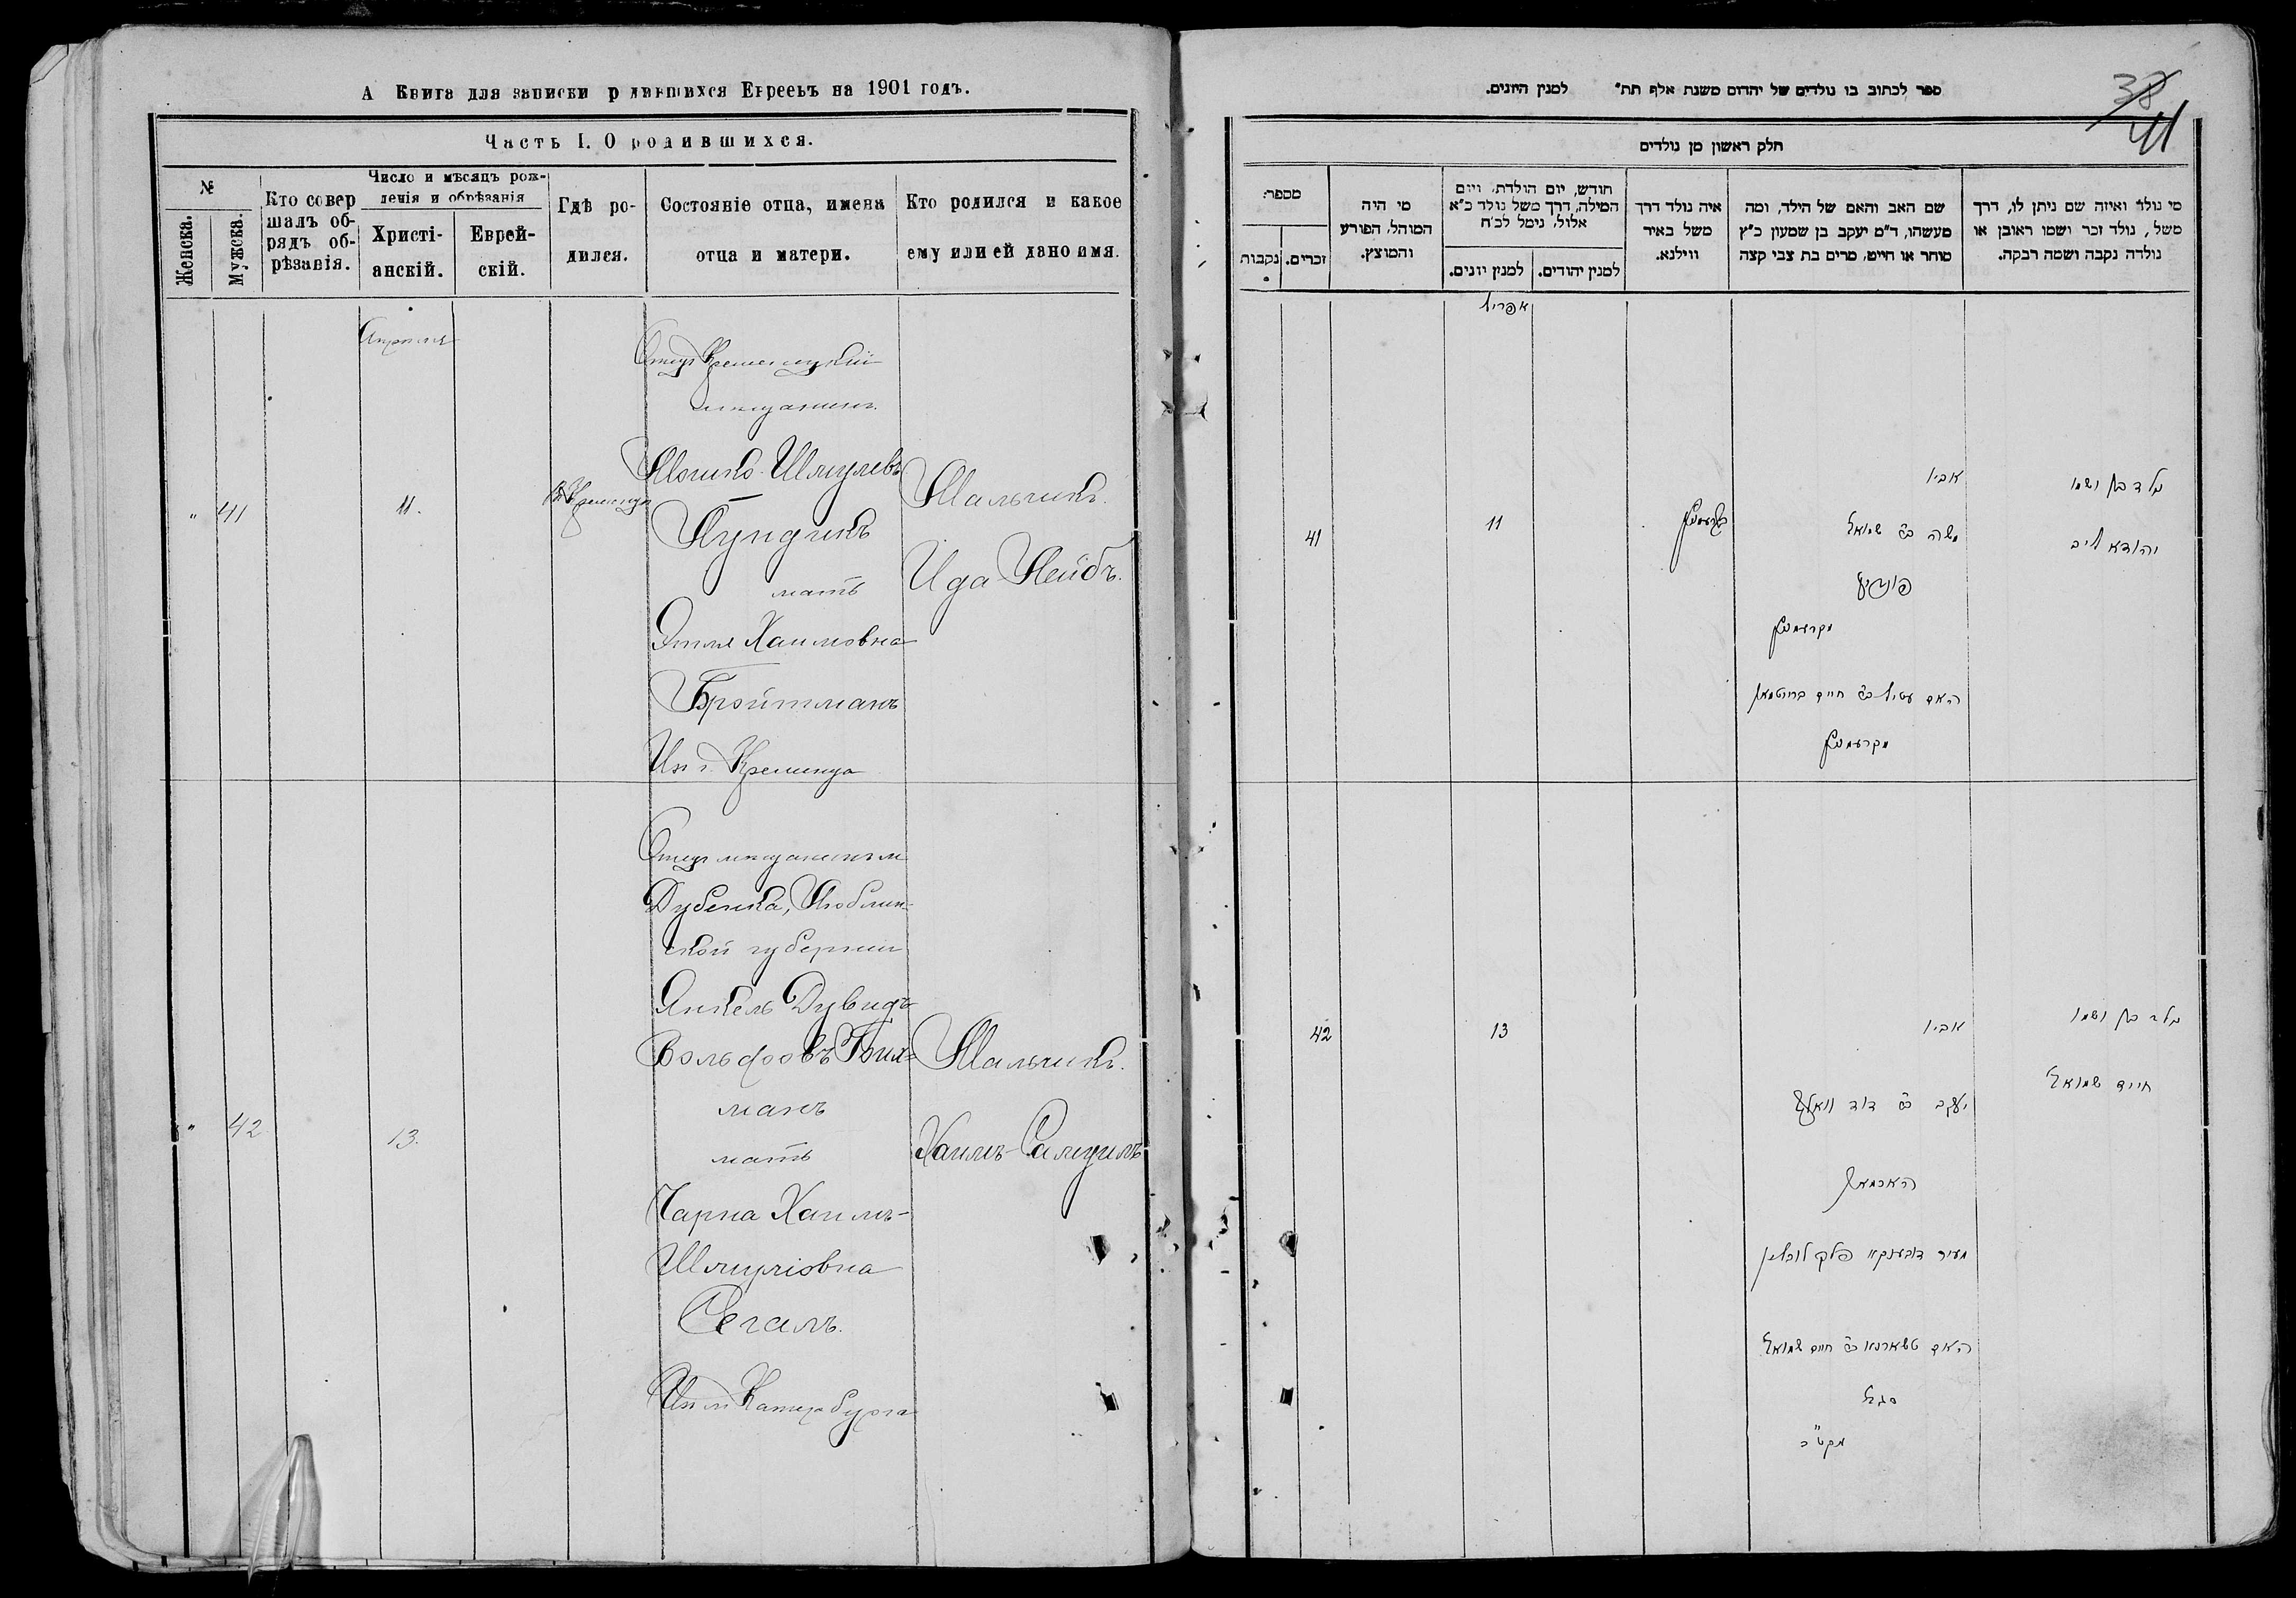 А Книга для записки р дившихся Евреевъ на 1901 годъ.
Часть I. О родившихся.
№
Женска.
Мужска.
Кто совер
шалъ об-
рядъ об-
рѣзанія.
Число и мѣсяцъ рож-
денія и обрѣзанія
Христі-
анскій.
Еврей-
скій.
Гдѣ ро-
дился.
Состояніе отца, имена
отца и матери.
Кто родился и какое
ему или ей дано имя.
Апрѣля
" 41
11.
Отецъ Кременецкій
мѣщанинъ
Мошко Шмулевъ
мать
Этля Хаимовна
Бройтманъ
Из г. Кременца
Мальчикъ.
Ида Лейбъ.
" 42
13.
Отецъ мѣщанинъ м
Дубенка, Люблин-
ской губерніи
Янкель Дувидъ
Вольфовъ
манъ
мать
Чарна Хаимъ-
Шмуліовна
Сегалъ.
Из м Катербурга
Мальчикъ.
Хаимъ-Самуилъ
ספר לכתוב בו נולדים של יהדום משנת אלף תת" למנין היונים.
38
41
חלק ראשון מן נולדים
מספר:
נקבות
זכרים.
מי היה
המוהל, הפורע
והמוצץ.
חודש, יום הולדת, ויום
המילה, דרך משל נולד כ"א
אלול, נימל לכ"ח
למנין יונים.
למנין יהודים.
איה נולד דרך
משל באיר
ווילנא.
שם האב והאם של הילד, ומה
מעשהו, ד"מ יעקב בן שמעון כ"ץ
סוחר או חייט, מרים בת צבי קצה
מי נולד ואיזה שם ניתן לו, דרך
משל, נולד זכר ושמו ראובן או
נולדה נקבה ושמה רבקה.
אפריל
41
11
אביו
משה ב"ר שמואל
מקרעמניץ
האם עטיל ב"ר חיים ברויטמאן
מקרעמניץ
נולד בן ושמו
יהודא ליב
42
13
אביו
יעקב ב"ר דוד וואלף
מעיר דובענקיי פלך לובלין
האם טשארנא ב"ר חיים שמואל
סגל
נולד בן ושמו
חיים שמואל